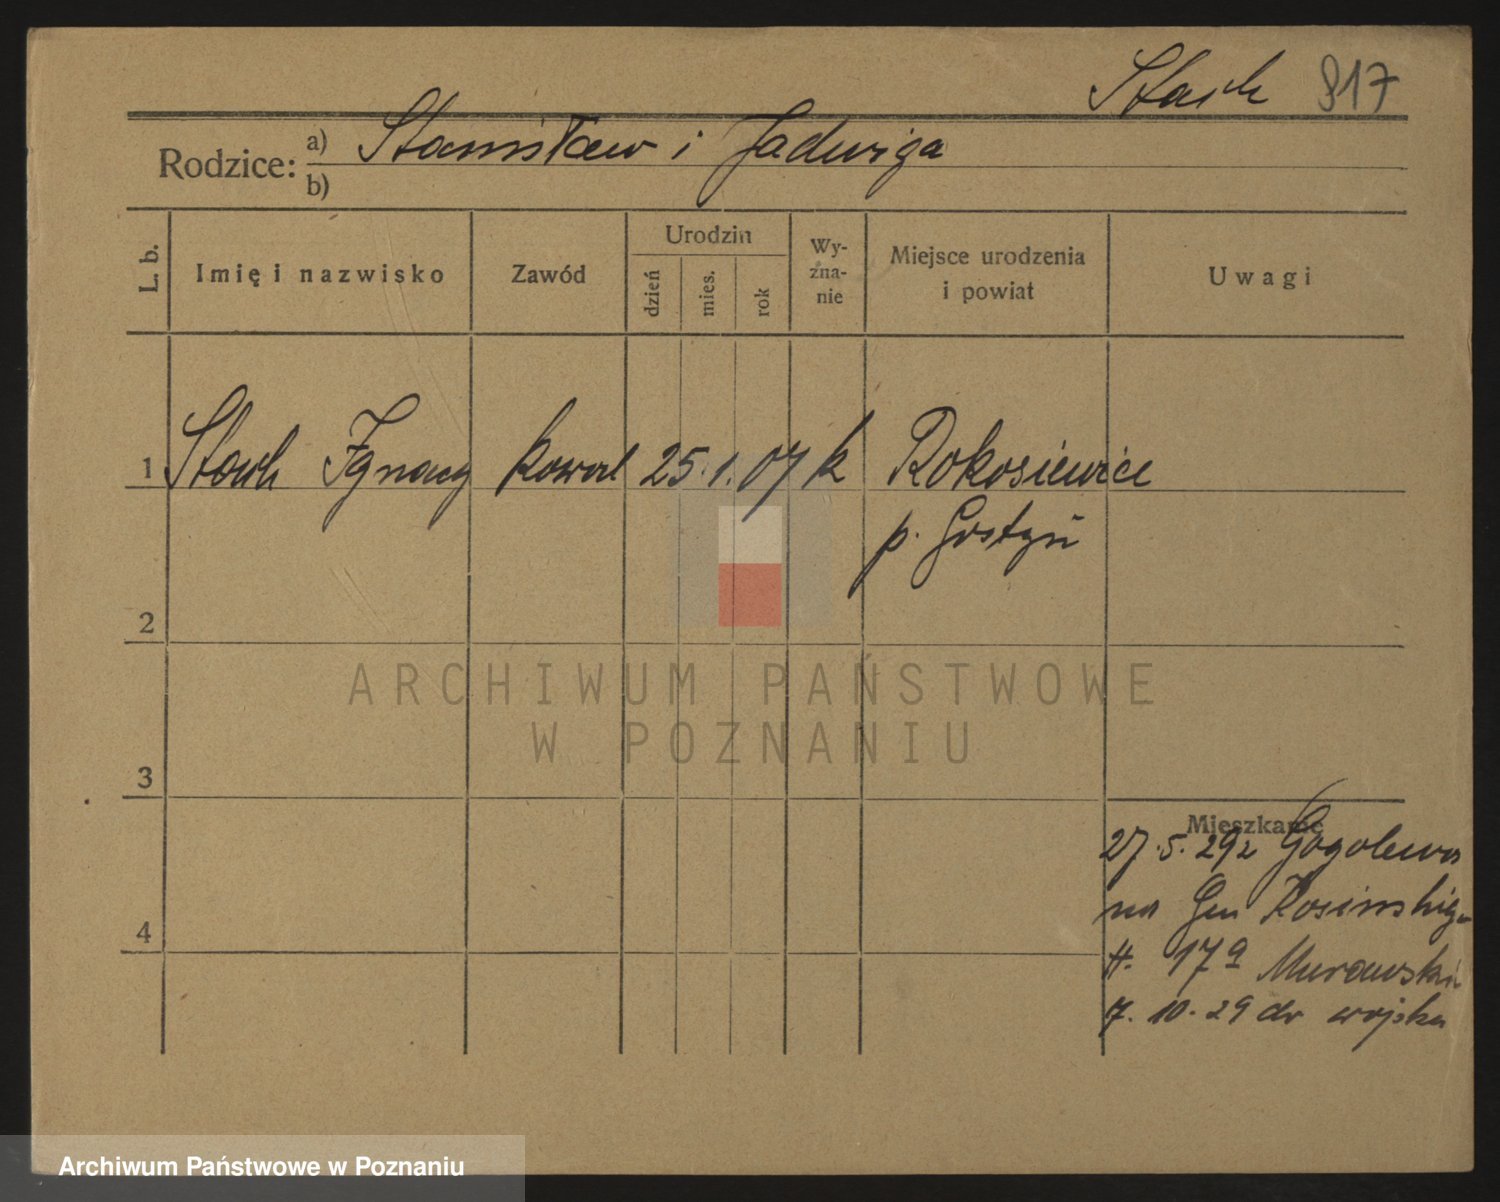 Stach 817
Rodzice: a) Stanisław i Jadwiga
b)
L. b. Imię i nazwisko Zawód Urodzin dzień mies. rok Wy-zna-nie Miejsce urodzenia i powiat Uwagi
1 Stach Ignacy kowal 25. 1. 07 k Rokosiewice
p. Gostyń
2
ARCHIWUM PAŃSTWOWE
W POZNANIU
3
Mieszkanie
27. 5. 29 z Gogolewa
na Gen Kosińskiego
H. 17a Murawski
4
7. 10. 29 do wojska
Archiwum Państwowe w Poznaniu